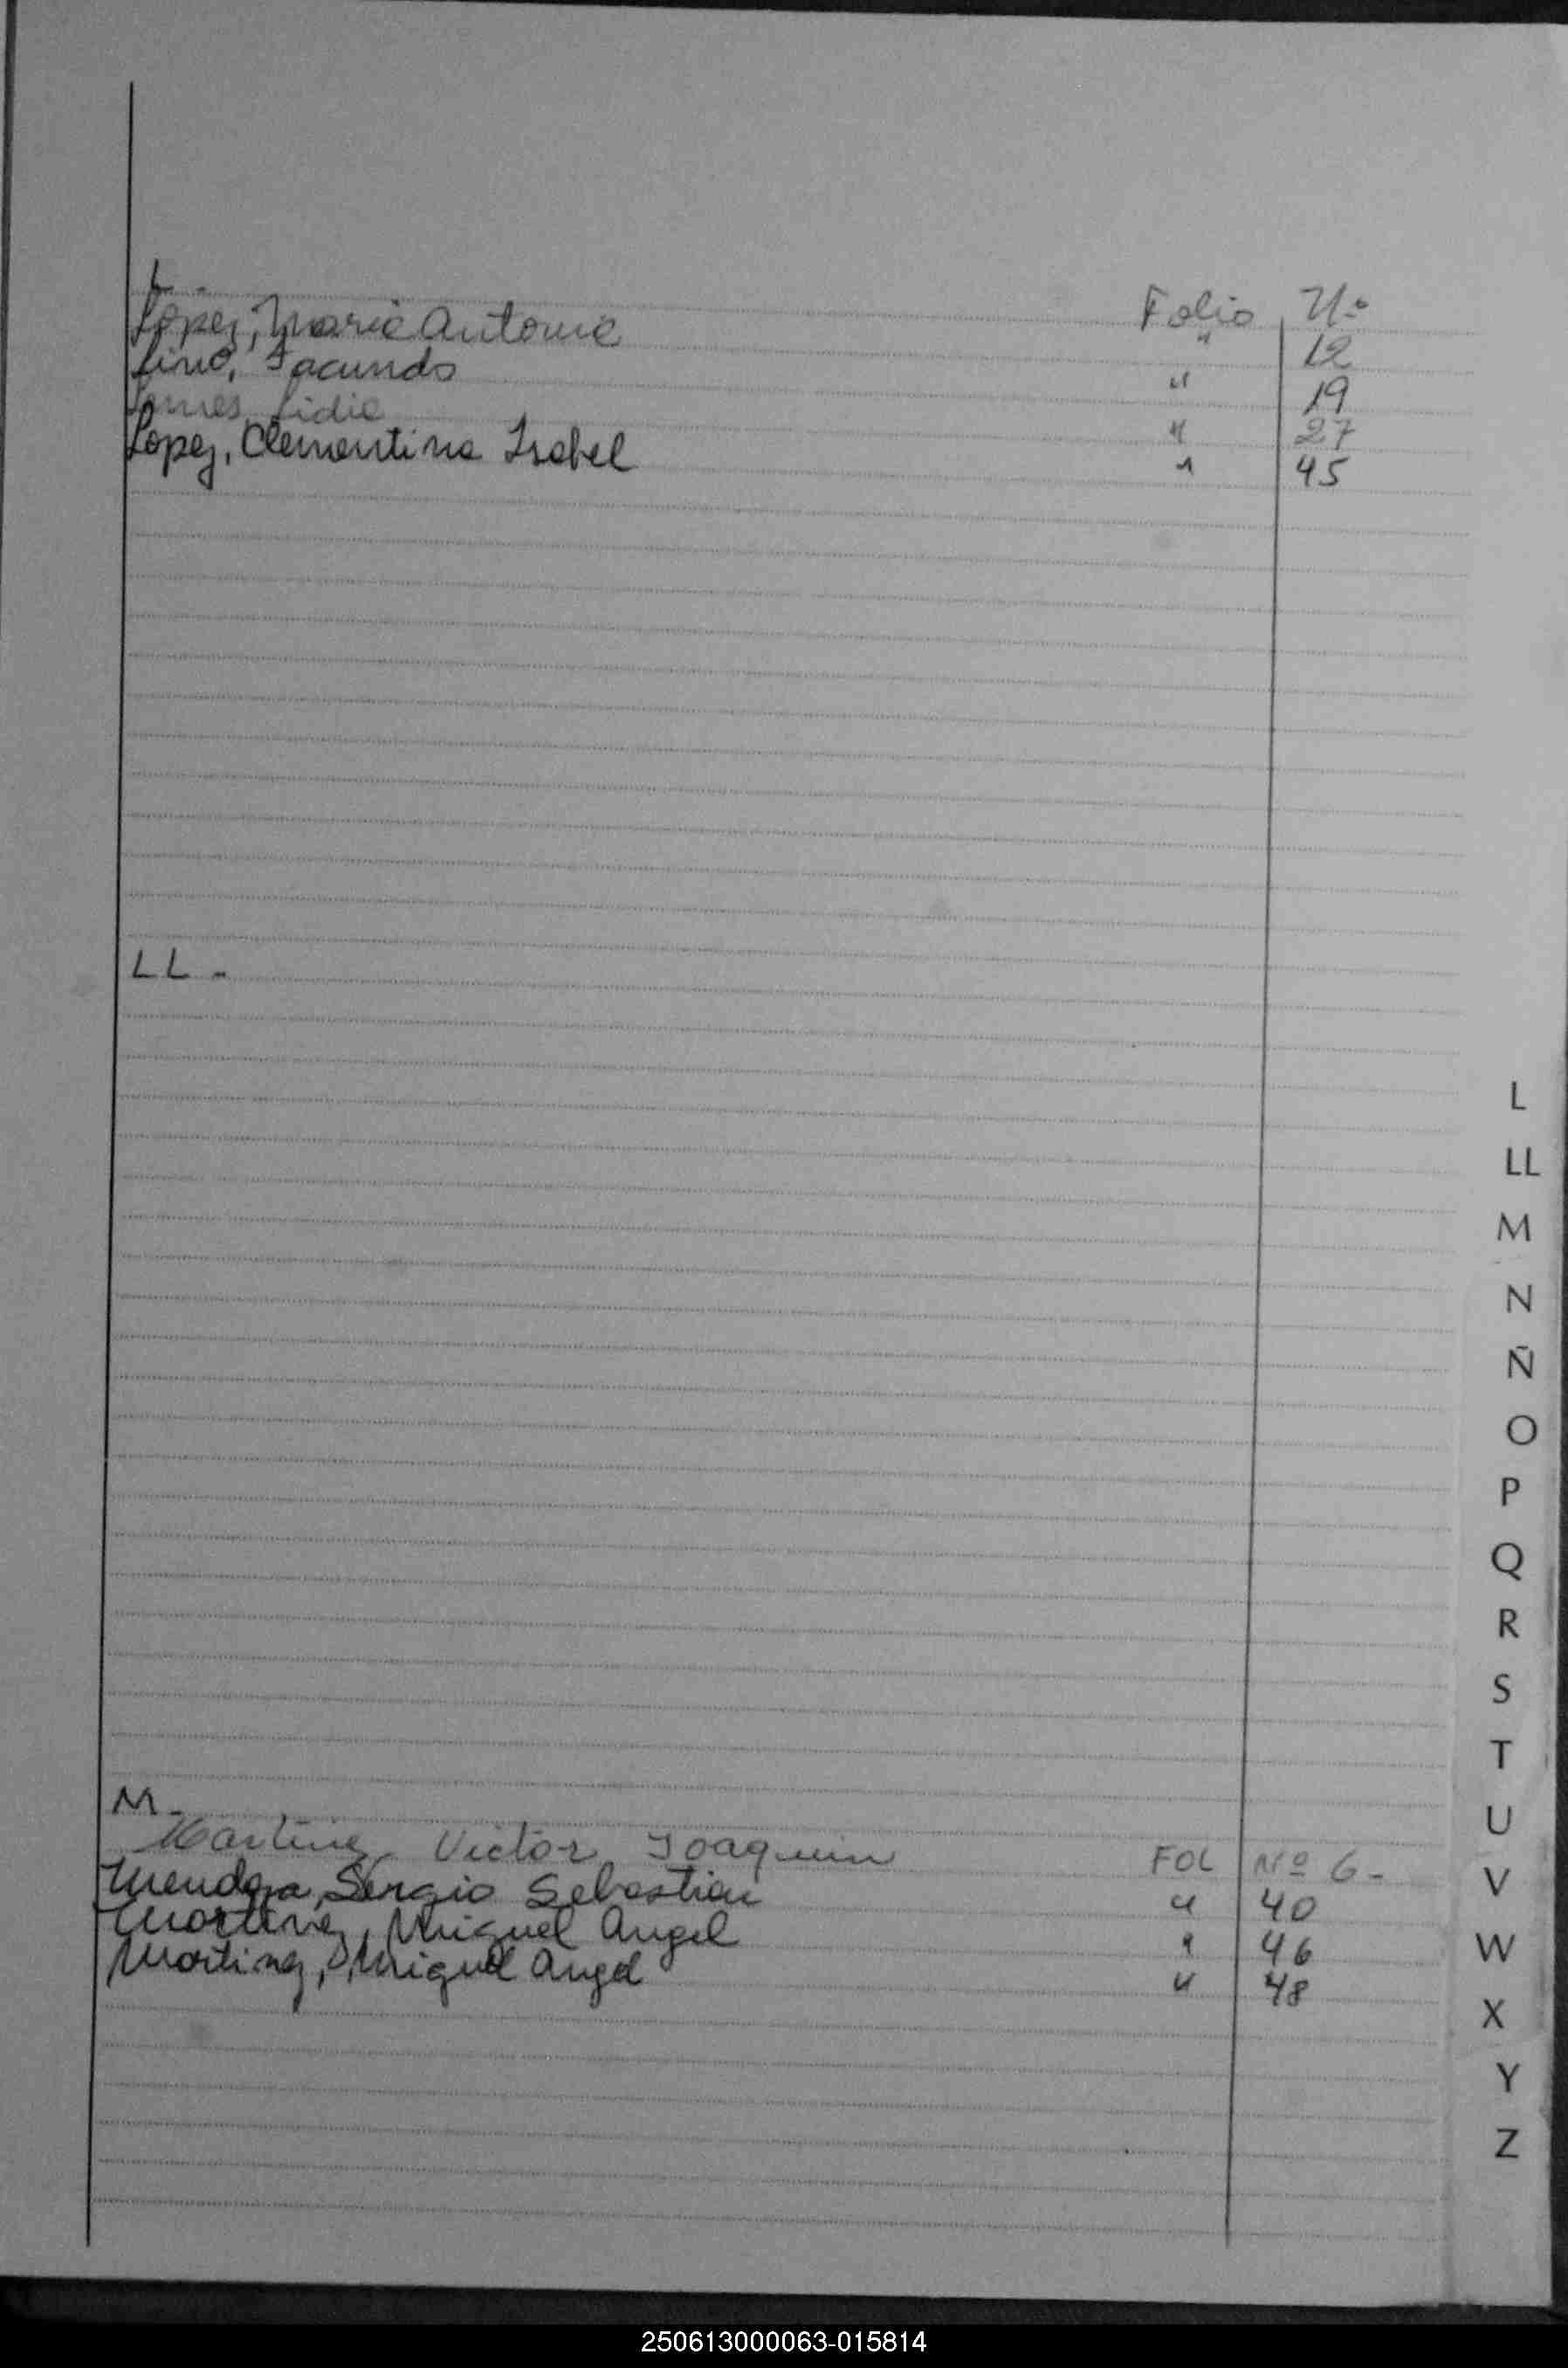 L -
Lopez, Maria Antonia Folio Nº 12
Lino, Facundo " 19
Lidia " 27
Lopez, Clementina Isabel " 45
LL -
M -
Martinez Victor Joaquin FOL Nº 6 -
Mendoza, Sergio Sebastian " 40
Martinez, Miguel Angel " 46
Martinez, Miguel Angel " 48
L
LL
M
N
Ñ
O
P
Q
R
S
T
U
V
W
X
Y
Z
250613000063-015814